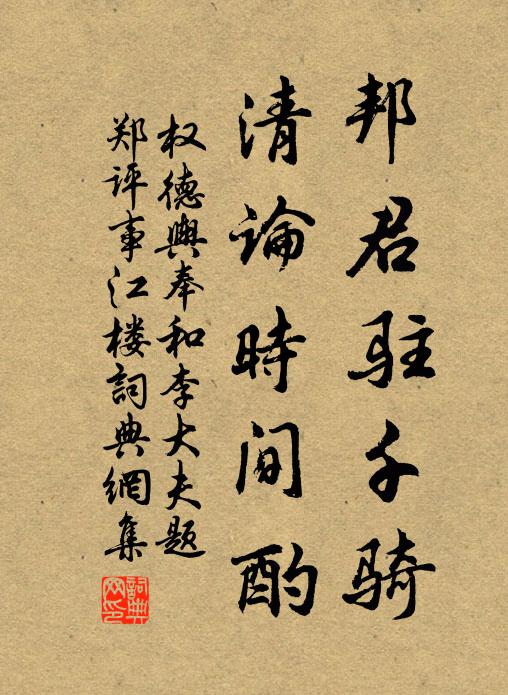 邦君驻千骑
清論時間酌
权德舆奉和李大夫题
郑评事江楼詞典網集
詞典网印